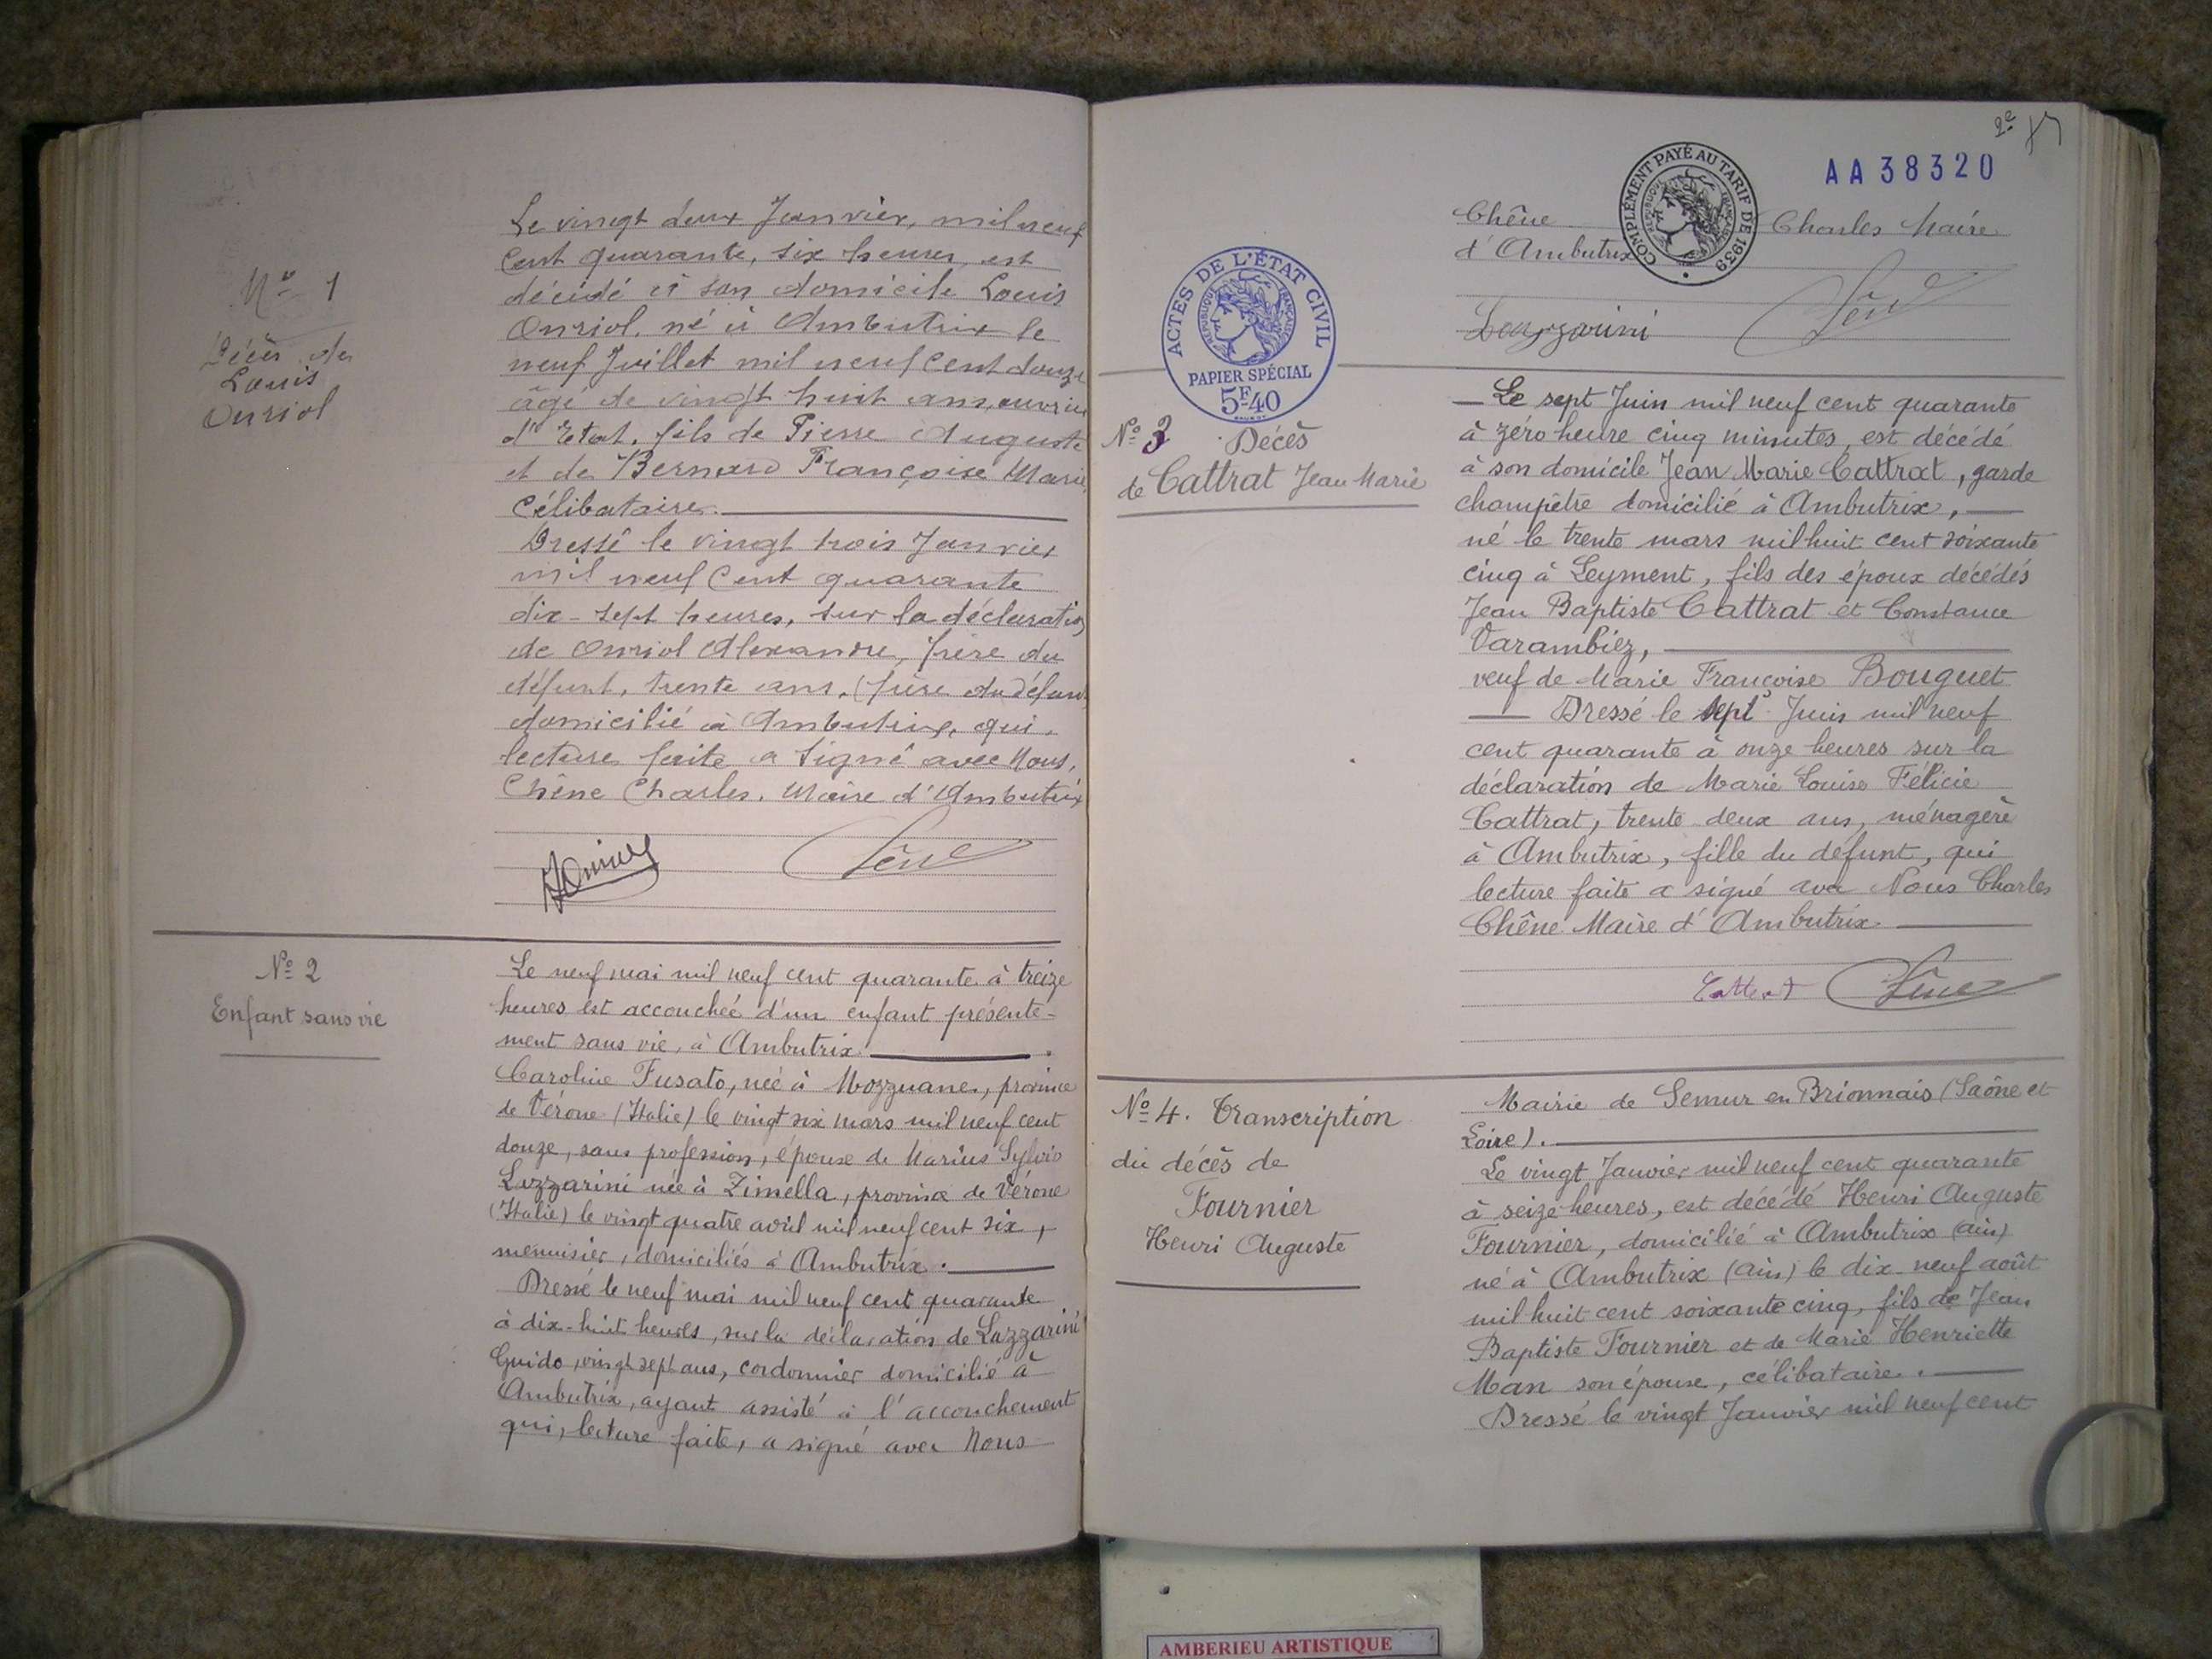 Nº 1
Décès de
Louis
Ouriol
Le vingt deux Janvier, mil neuf
Cent quarante, six heures, est
décédé à son domicile Louis
Ouriol, né à Ambutrix le
neuf Juillet mil neuf Cent douze
âgé de vingt huit ans, ouvrier
d'Etat, fils de Pierre Auguste
et de Bernard Françoise Marie
Célibataire.
Dressé le vingt trois Janvier
mil neuf Cent quarante
dix-sept heures, sur la déclaration
de Ouriol Alexandre, frère du
défunt, trente ans, (frère du défunt
domicilié à Ambutrix, qui,
lecture faite a signé avec Nous,
Chêne Charles, Maire d'Ambutrix
Chêne
Nº 2
Enfant sans vie
Le neuf mai mil neuf cent quarante à treize
heures est accouchée d'un enfant présente-
ment sans vie, à Ambutrix.
Caroline Fusato, née à Mozzuane, province
de Vérone (Italie) le vingt six mars mil neuf cent
douze, sans profession, épouse de Marius Sylvio
Lazzarini née à Zimella, province de Vérone
(Italie) le vingt quatre avril mil neuf cent six,
menuisier, domiciliés à Ambutrix.
Dressé le neuf mai mil neuf cent quarante
à dix-huit heures, sur la déclaration de Lazzarini
Guido, vingt sept ans, cordonnier domicilié à
Ambutrix, ayant assisté à l'accouchement
qui, lecture faite, a signé avec Nous
2e
AA38320
COMPLÉMENT PAYÉ AU TARIF DE 1939
RÉPUBLIQUE FRANÇAISE
Chêne Charles Maire
d'Ambutrix
Lazzarini Chêne
ACTES DE L'ÉTAT CIVIL
RÉPUBLIQUE FRANÇAISE
PAPIER SPÉCIAL
5F40
Nº 3 Décès
de Cattrat Jean Marie
Le sept Juin mil neuf cent quarante
à zéro heure cinq minutes, est décédé
à son domicile Jean Marie Cattrat, garde
champêtre domicilié à Ambutrix,
né le trente mars mil huit cent soixante
cinq à Leyment, fils des époux décédés
Jean Baptiste Cattrat et Constance
Varambiez,
veuf de Marie Françoise Bouguet
Dressé le sept Juin mil neuf
cent quarante à onze heures sur la
déclaration de Marie Louise Félicie
Cattrat, trente deux ans, ménagère
à Ambutrix, fille du défunt, qui
lecture faite a signé avec Nous Charles
Chêne Maire d'Ambutrix
Cattrat Chêne
Nº 4. Transcription
du décès de
Fournier
Henri Auguste
Mairie de Semur en Brionnais (Saône et
Loire).
Le vingt Janvier mil neuf cent quarante
à seize heures, est décédé Henri Auguste
Fournier, domicilié à Ambutrix (Ain)
né à Ambutrix (Ain) le dix-neuf août
mil huit cent soixante cinq, fils de Jean
Baptiste Fournier et de Marie Henriette
Man son épouse, célibataire.
Dressé le vingt Janvier mil neuf cent
AMBERIEU ARTISTIQUE